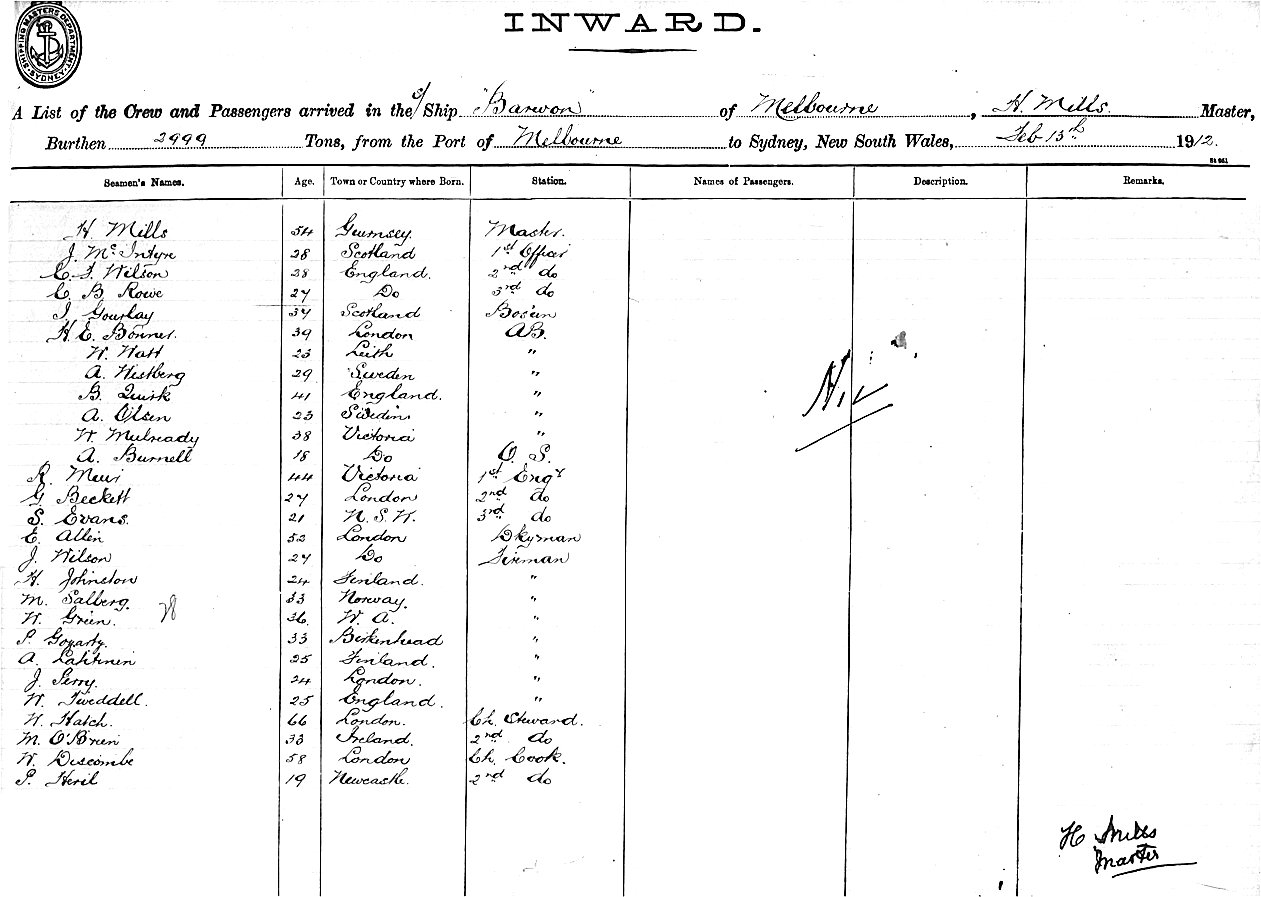 SHIPPING MASTERS DEPARTMENT SYDNEY
INWARD.
A List of the Crew and Passengers arrived in the S/ Ship "Barwon" of Melbourne, H. Mills. Master,
Burthen 2999 Tons, from the Port of Melbourne to Sydney, New South Wales, Feb 15th 1912.
Seamen's Names. Age. Town or Country where Born. Station. Names of Passengers. Description. Remarks.
H. Mills 54 Guernsey. Master.
J. McIntyre 28 Scotland 1st Officer
C. F. Wilson 28 England. 2nd do
C. B. Rowe 27 Do 3rd do
J. Gourlay 37 Scotland Bos'un
H. E. Bonner. 39 London AB.
W. Watt 23 Leith "
A. Westberg 29 Sweden "
B. Quirk 41 England. "
A. Olsen 23 Sweden "
W. Mulready 38 Victoria "
A. Burnell 18 Do O. S.
R. Muir 44 Victoria 1st Engr
G Beckett 27 London 2nd do
S. Evans. 21 N. S. W. 3rd do
E. Allen 52 London Dkyman
J. Wilson 27 Do Fireman
H. Johnston 24 Finland. "
M. Salberg. 33 Norway. "
W. Green. 36. W. A. "
P. Gogarty. 33 Birkenhead "
A. Lahtinen 25 Finland. "
J. Perry. 24 London. "
W. Tweddell. 25 England. "
W. Hatch. 66 London. Ch. Steward.
M. O'Brien 33 Ireland. 2nd do
W. Discombe 58 London Ch. Cook.
P. 19 Newcastle. 2nd do
Nil
28
H Mills
Master